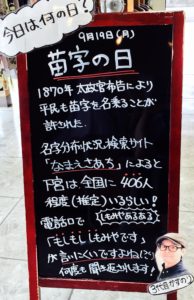 今日は何の日?
9月19日(月)
苗字の日
1870年 太政官布告により
平民も苗字を名乗ることが
許された.
名字分布状況検索サイト
「なまえさあち」によると
下宮は全国に 406人
程度(推定)いるらしい!
電話口で しもみやあるある
「もしもし しもみやです」
が言いにくいですよね(^^;)
何度も聞き返されます!
3代目かずの